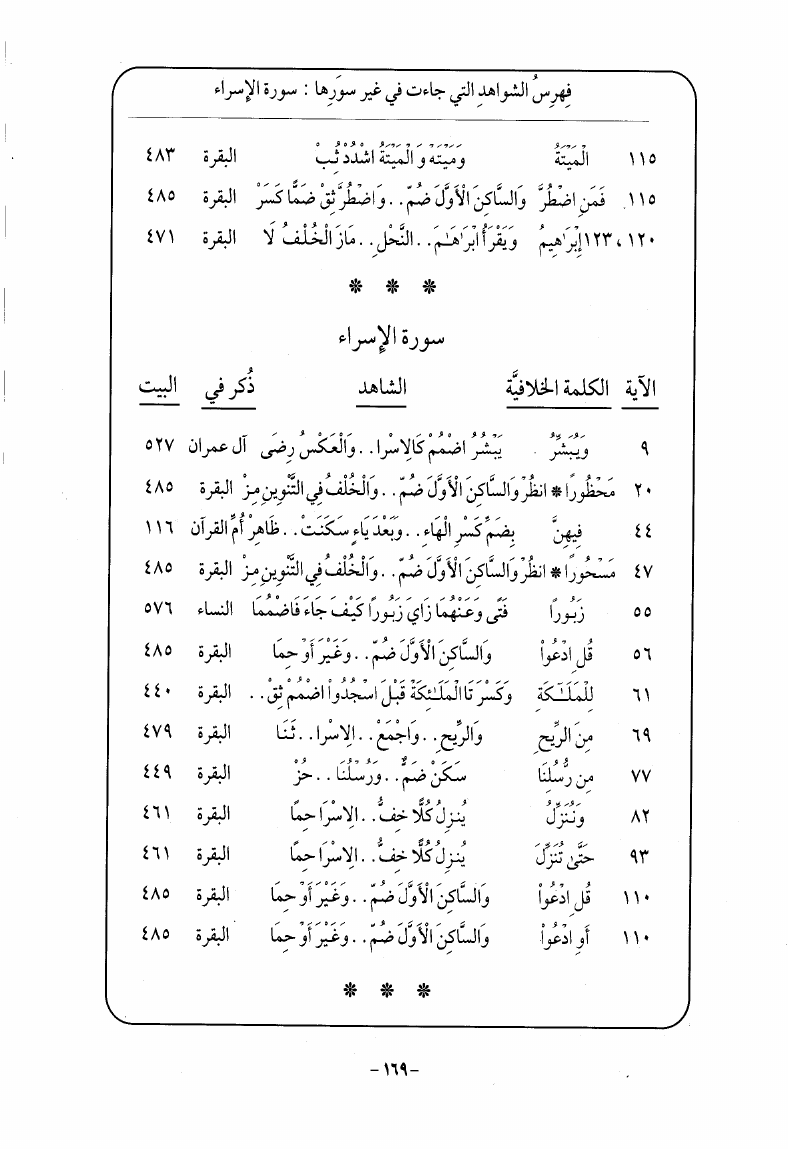 فِهرِسُ الشواهد التي جاءت في غير سوَرها : سورة الإسراء
١١٥ الْمَيْتَةَ وَمَيْتَةً وَالْمَيْتَةُ اشْدُدْ ثُبْ البقرة ٤٨٣
١١٥ فَمَنِ اضْطُرَّ وَالسَّاكِنَ الْأَوَّلَ ضُمَّ..وَاضْطُرَّ ثِقْ ضَمًّا كَسَرْ البقرة ٤٨٥
١٢٠، ١٢٣ إِبْرَٰهِيمُ وَيَقْرَأُ ابْرَاهَامَ..النَّحْلِ..مَازَ الْخُلْفُ لَا البقرة ٤٧١
* * *
سورة الإسراء
الآية الكلمة الخلافيَّة الشاهد ذُكر في البيت
٩ وَيُبَشِّرُ يَبْشُرُ اضْمُمْ كَالِاسْرا..وَالْعَكْسُ رِضَى آل عمران ٥٢٧
٢٠ مَحْظُورًا * انظُرْ وَالسَّاكِنَ الْأَوَّلَ ضُمَّ..وَالْخُلْفُ فِي التَّنْوِينِ مِزْ البقرة ٤٨٥
٤٤ فِيهِنَّ بِضَمِّ كَسْرِ الْهَاءِ..وَبَعْدَ يَاءٍ سَكَنَتْ..ظَاهِرٌ أُمّ القرآن ١١٦
٤٧ مَسْحُورًا * انظُرْ وَالسَّاكِنَ الْأَوَّلَ ضُمَّ..وَالْخُلْفُ فِي التَّنْوِينِ مِزْ البقرة ٤٨٥
٥٥ زَبُورًا فَتًى وَعَنْهُمَا زَايَ زَبُورًا كَيْفَ جَاءَ فَاضْمُمَا النساء ٥٧٦
٥٦ قُلِ ادْعُواْ وَالسَّاكِنَ الْأَوَّلَ ضُمَّ..وَغَيْرَ أَوْ حِمَا البقرة ٤٨٥
٦١ لِلْمَلَـٰٓئِكَةِ وَكَسْرَ تَا الْمَلَـٰٓئِكَةِ قَبْلَ اسْجُدُواْ اضْمُمْ ثِقْ.. البقرة ٤٤٠
٦٩ مِنَ الرِّيحِ وَالرِّيحِ..وَاجْمَعْ..الِاسْرا..ثَنَا البقرة ٤٧٩
٧٧ مِن رُّسُلِنَا سَكِّنْ ضَمَّ..وَرُسْلُنَا..حُزْ البقرة ٤٤٩
٨٢ وَنُنَزِّلُ يُنزِلُ كُلًّا خِفَّ..الِاسْرَا حِمَا البقرة ٤٦١
٩٣ حَتَّىٰ تُنَزِّلَ يُنزِلُ كُلًّا خِفَّ..الِاسْرَا حِمَا البقرة ٤٦١
١١٠ قُلِ ادْعُواْ وَالسَّاكِنَ الْأَوَّلَ ضُمَّ..وَغَيْرَ أَوْ حِمَا البقرة ٤٨٥
١١٠ أَوِ ادْعُواْ وَالسَّاكِنَ الْأَوَّلَ ضُمَّ..وَغَيْرَ أَوْ حِمَا البقرة ٤٨٥
* * *
-١٦٩-